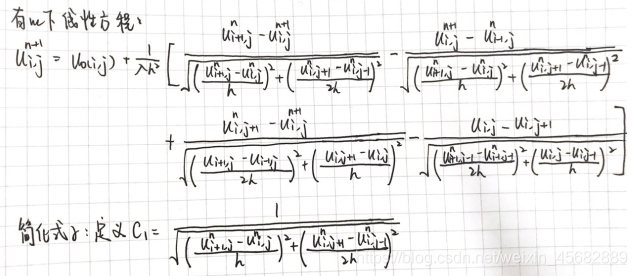 有如下线性方程:
u_{i,j}^{n+1} = u_0(i,j) + \frac{1}{\lambda h^2} [ \frac{u_{i+1,j}^{n} - u_{i,j}^{n+1}}{\sqrt{(\frac{u_{i+1,j}^{n} - u_{i,j}^{n}}{h})^2 + (\frac{u_{i,j+1}^{n} - u_{i,j-1}^{n}}{2h})^2}} - \frac{u_{i,j}^{n+1} - u_{i-1,j}^{n}}{\sqrt{(\frac{u_{i,j}^{n} - u_{i-1,j}^{n}}{h})^2 + (\frac{u_{i,j+1}^{n} - u_{i,j-1}^{n}}{2h})^2}}
+ \frac{u_{i,j+1}^{n} - u_{i,j}^{n+1}}{\sqrt{(\frac{u_{i+1,j} - u_{i-1,j}}{2h})^2 + (\frac{u_{i,j+1} - u_{i,j}}{h})^2}} - \frac{u_{i,j} - u_{i,j+1}}{\sqrt{(\frac{u_{i+1,j-1}^{n} - u_{i-1,j-1}^{n}}{2h})^2 + (\frac{u_{i,j} - u_{i,j-1}}{h})^2}} ]
简化式子:定义 C_1 = \frac{1}{\sqrt{(\frac{u_{i+1,j}^{n} - u_{i,j}^{n}}{h})^2 + (\frac{u_{i,j+1}^{n} - u_{i,j-1}^{n}}{2h})^2}}
http://blog.csdn.net/weixin_45682889